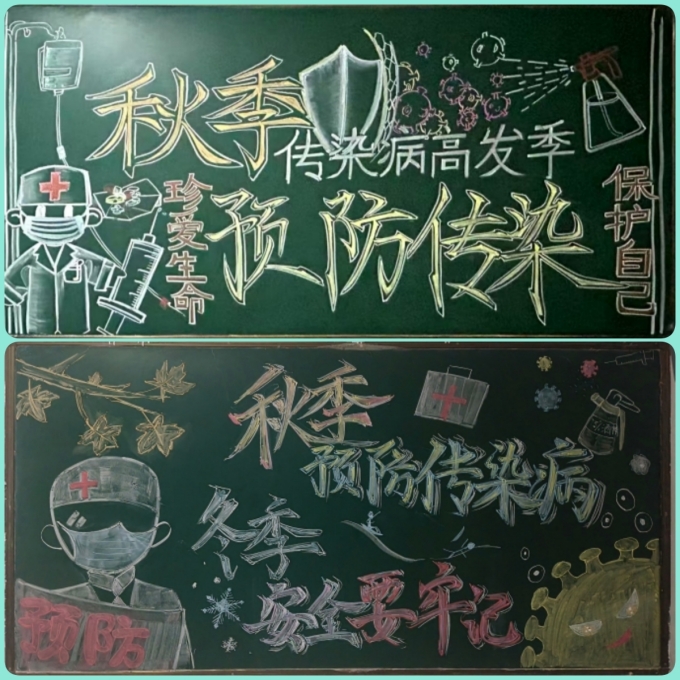 秋季
传染病高发季
预防传染
珍爱生命
保护自己
秋季
预防传染病
冬季
安全要牢记
预防